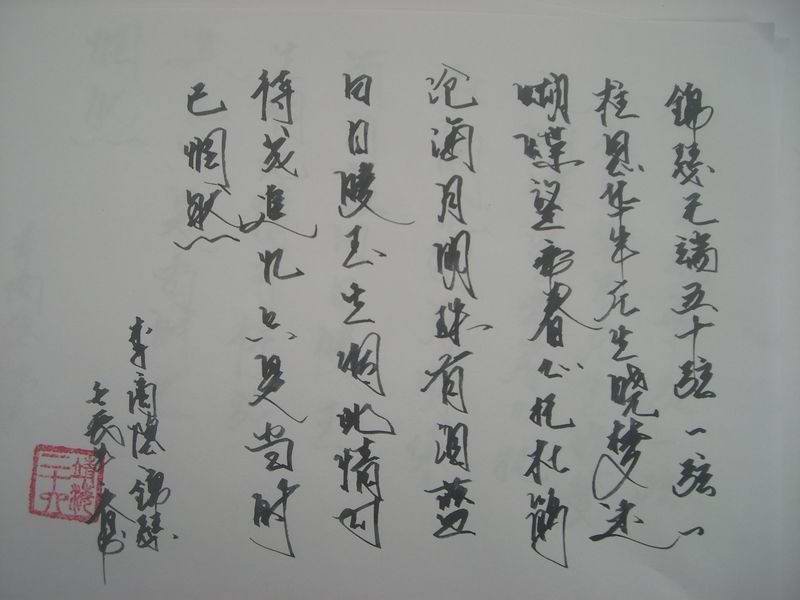 錦瑟无端五十弦一弦一
柱思华年庄生晓梦迷
蝴蝶望帝春心托杜鹃
沧海月明珠有泪蓝
田日暖玉生烟此情可
待成追忆只是当时
已惘然
李商隐錦瑟